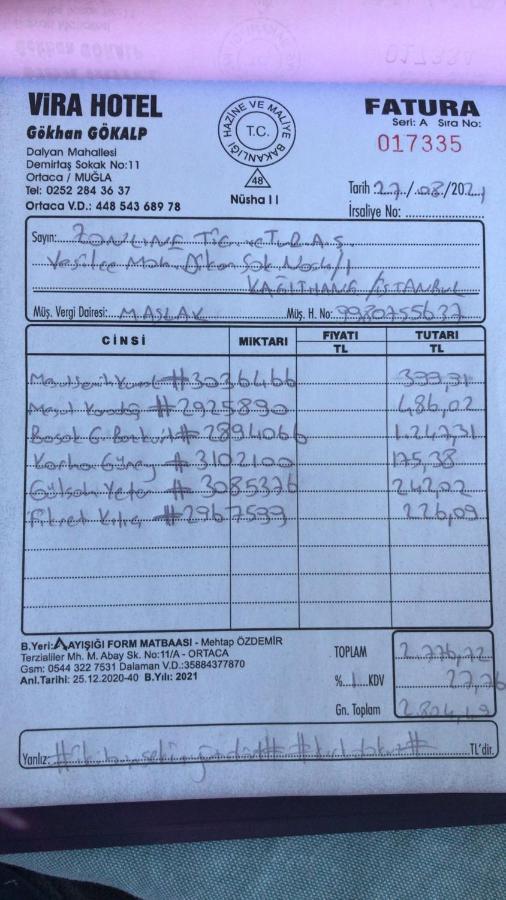 ViRA HOTEL
Gökhan GÖKALP
Dalyan Mahallesi
Demirtaş Sokak No:11
Ortaca / MUĞLA
Tel: 0252 284 36 37
Ortaca V.D.: 448 543 689 78
HAZİNE VE MALİYE BAKANLIĞI
T.C.
48
Nüsha II
FATURA
Seri: A Sıra No:
017335
Tarih: 27/08/2021
İrsaliye No:
Sayın: ZONLINE TİC ve TUR A.Ş
Yeşilce Mah
KAĞITHANE/İSTANBUL
Müş. Vergi Dairesi: MASLAK Müş. H. No: 9980755637
CİNSİ MİKTARI FİYATI TL TUTARI TL
#3036466 399,91
#2925890 486,02
Başak G #2894066 1.247,31
Güney #3102100 175,38
Gülşah Yeter #3085376 242,02
Fikret Kılıç #2967599 226,09
B.Yeri: AAYIŞIĞI FORM MATBAASI - Mehtap ÖZDEMİR
Terzialiler Mh. M. Abay Sk. No:11/A - ORTACA
Gsm: 0544 322 7531 Dalaman V.D.:35884377870
Anl.Tarihi: 25.12.2020-40 B.Yılı: 2021
TOPLAM 2.776,72
% 1 KDV 27,76
Gn. Toplam 2.804,49
Yanlız: TL'dir.